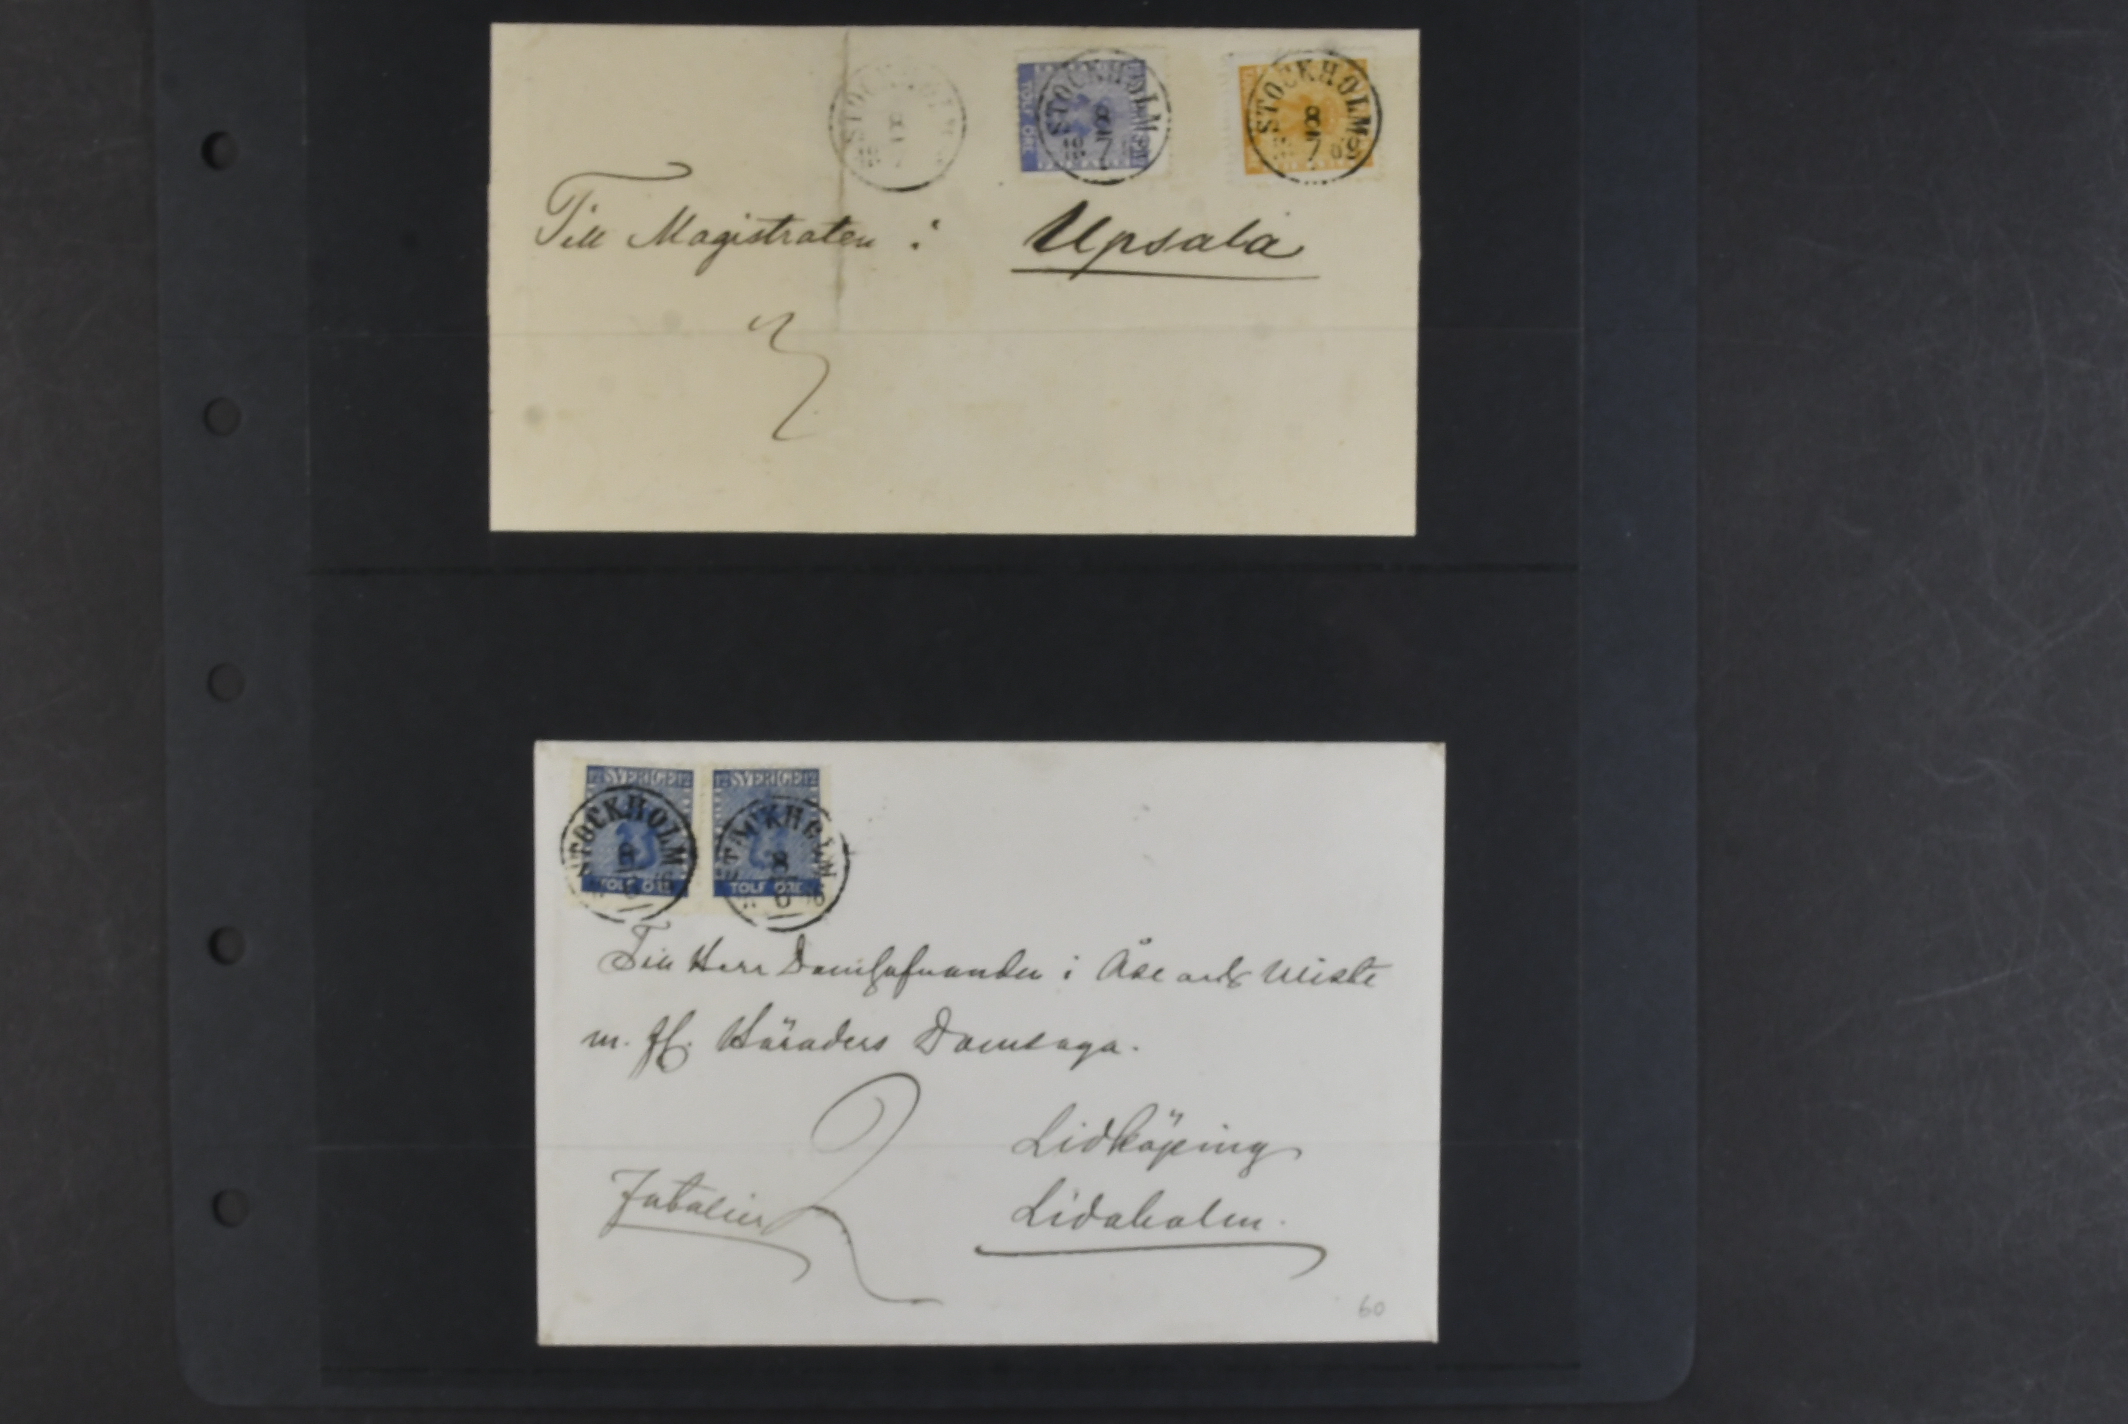 STOCKHOLM
8
STOCKHOLM
8
7
TOLF ÖRE
STOCKHOLM
8
7
Till Magistraten i Upsala
3
12 SVERIGE 12
12 SVERIGE 12
STOCKHOLM
8
STOCKHOLM
8
6
TOLF ÖRE
TOLF ÖRE
Till Herr Domhafvanden i Åse och Wiste
m. fl. Häraders Domsaga.
2
Lidköping
Fatalier
Lidaholm.
60